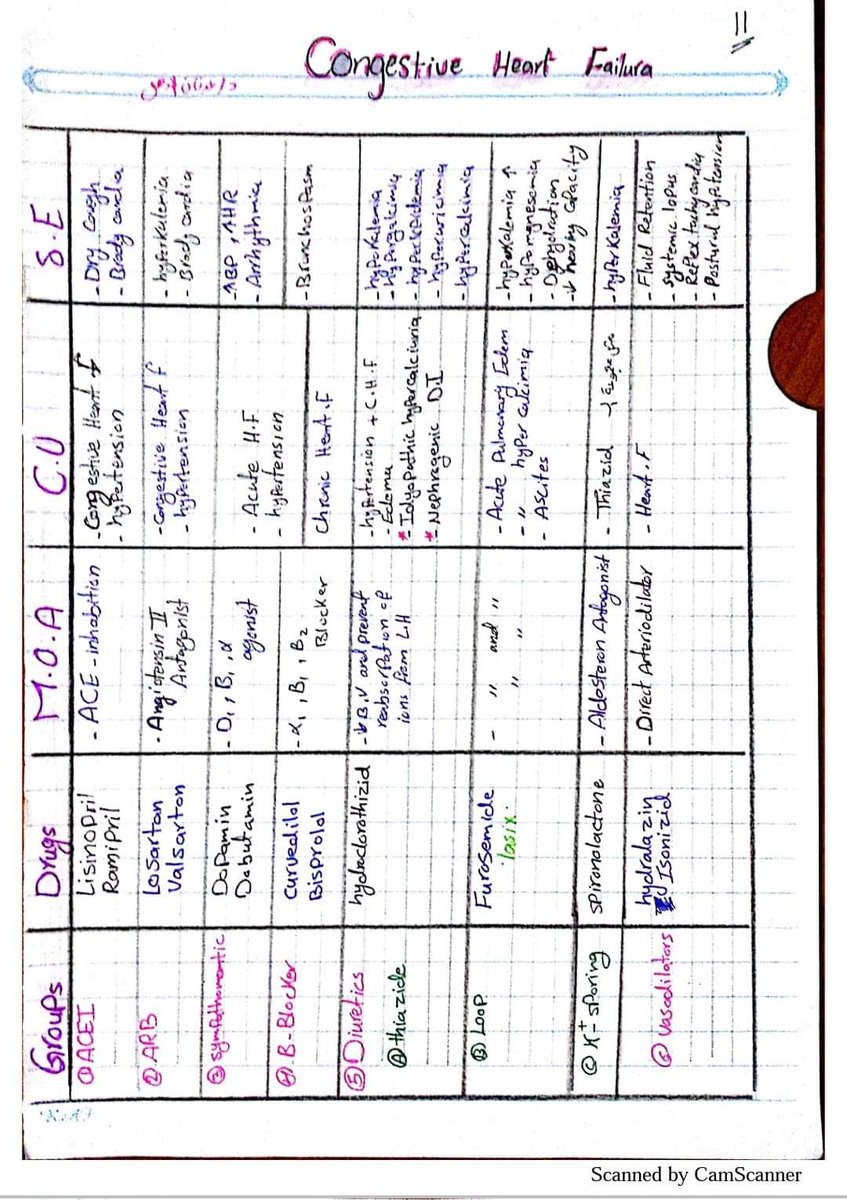 11
Congestive Heart Failura
Groups
Drugs
M.O.A
C.U
S.E
① ACEI
Lisinopril
Ramipril
- ACE-inhabition
- Congestive Heart f
- hypertension
- Dry Cough
- Brady cardia
② ARB
Losartan
Valsarton
- Angiotensin II
Antagonist
- Congestive Heart f
- hypertension
- hyperkalemia
- Brady cardia
③
Dopamin
Dobutamin
- D1, B1, α
agonist
- Acute H.F
- hypertension
- ↑BP, ↑HR
- Arrhythmia
④ B-Blocker
Curvedilol
Bisprolol
- α1, B1, B2
Blocker
Chronic Heart.F
- Bronchospasm
⑤ Diuretics
Ⓐ thiazide
hydroclorothizid
- ↓ B.V and prevent
reabsorpation of
ions from LH
- hypertension + C.H.F
- Edema
* Idyopathic hypercalciuria
* Nephrogenic D.I
- hyperuricimia
- hypercalcimia
Ⓑ Loop
Furosemide
lasix
- " and "
" "
- Acute Pulmonary Edem
- " hyper calcimia
- Ascites
- Dehydration
- ↓ hearing capacity
Ⓒ K+ - sparing
spironolactone
- Aldosteron Antagonist
- Thiazid
- hyperkalemia
⑥ Vasodilators
hydralazin
Isonizid
- Direct Arteriodilator
- Heart.F
- Fluid Retention
- systemic lopus
- Reflex tachycardia
- Postural hypotension
Scanned by CamScanner